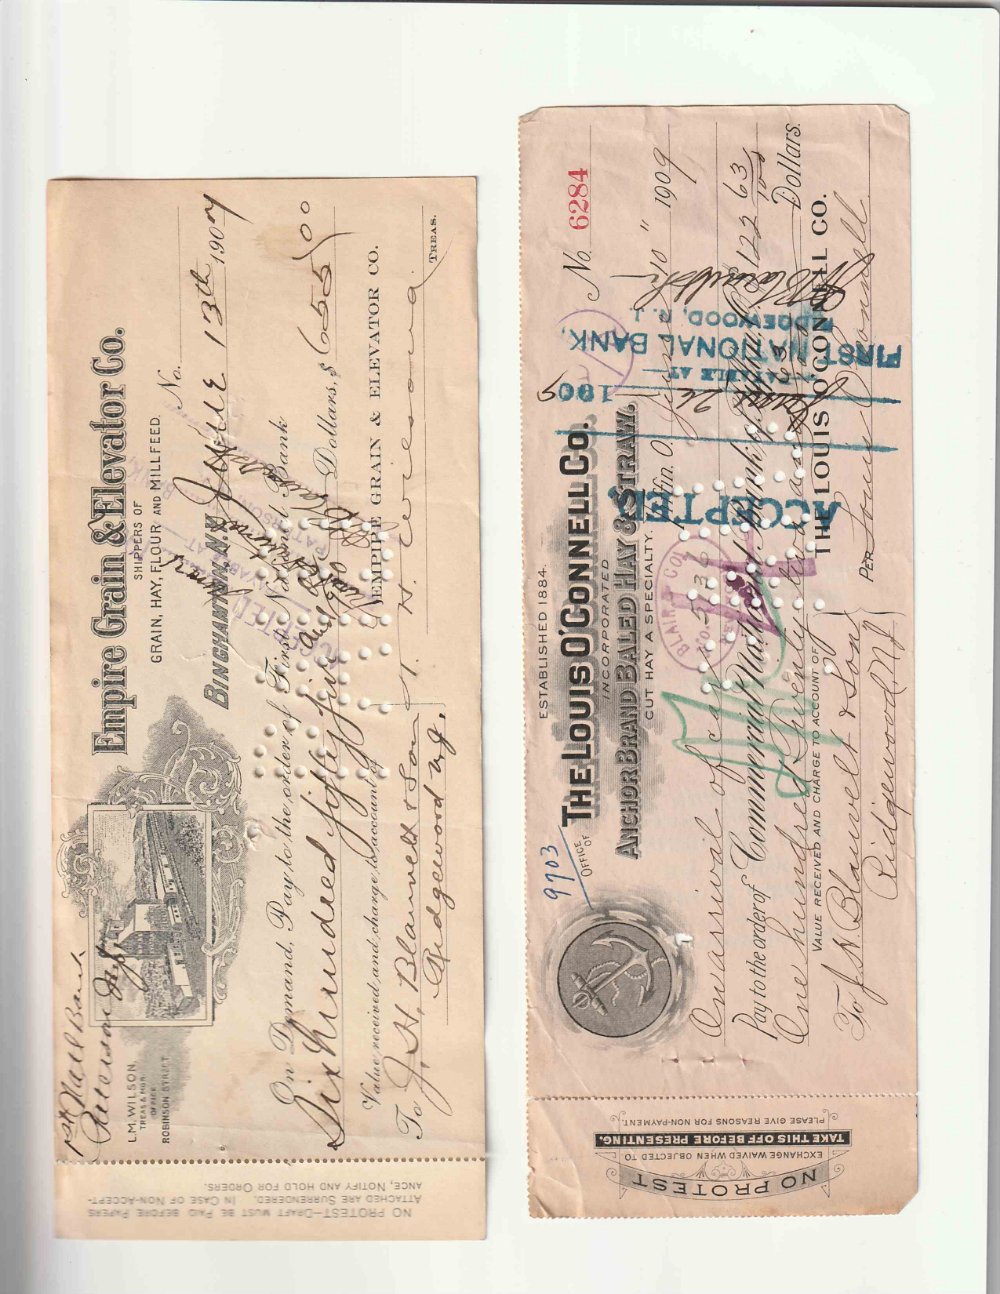 1st Natl Bank
Paterson NJ
L.M. WILSON,
TREAS & MGR.
OFFICE
ROBINSON STREET
Empire Grain & Elevator Co.
SHIPPERS OF
GRAIN, HAY, FLOUR AND MILLFEED.
No.
BINGHAMTON, N.Y. June 13th 1907
On Demand, Pay to the order of First National Bank
Six hundred fifty five Dollars, $ 655.00
Value received, and charge to account of
EMPIRE GRAIN & ELEVATOR CO.
To J. H. Blauvelt & Son
Ridgewood N.J.
TREAS.
NO PROTEST—DRAFT MUST BE PAID BEFORE PAPERS
ATTACHED ARE SURRENDERED. IN CASE OF NON-ACCEPT-
ANCE, NOTIFY AND HOLD FOR ORDERS.
9703
ESTABLISHED 1884.
OFFICE OF
THE LOUIS O'CONNELL CO.
INCORPORATED
ANCHOR BRAND BALED HAY & STRAW.
CUT HAY A SPECIALTY.
No. 6284
Tiffin, O. June 10" 1909
On arrival of car
Pay to the order of Commercial National Bank $ 122 63/100
One hundred & twenty two Dollars.
VALUE RECEIVED AND CHARGE TO ACCOUNT OF
THE LOUIS O'CONNELL CO.
To J H Blauvelt & Son
Ridgewood N.J.
PER Louis O'Connell
ACCEPTED,
190 9
PAYABLE AT
FIRST NATIONAL BANK,
RIDGEWOOD, N. J.
BLAIR & CO.
NO PROTEST
EXCHANGE WAIVED WHEN OBJECTED TO
TAKE THIS OFF BEFORE PRESENTING.
PLEASE GIVE REASONS FOR NON-PAYMENT.